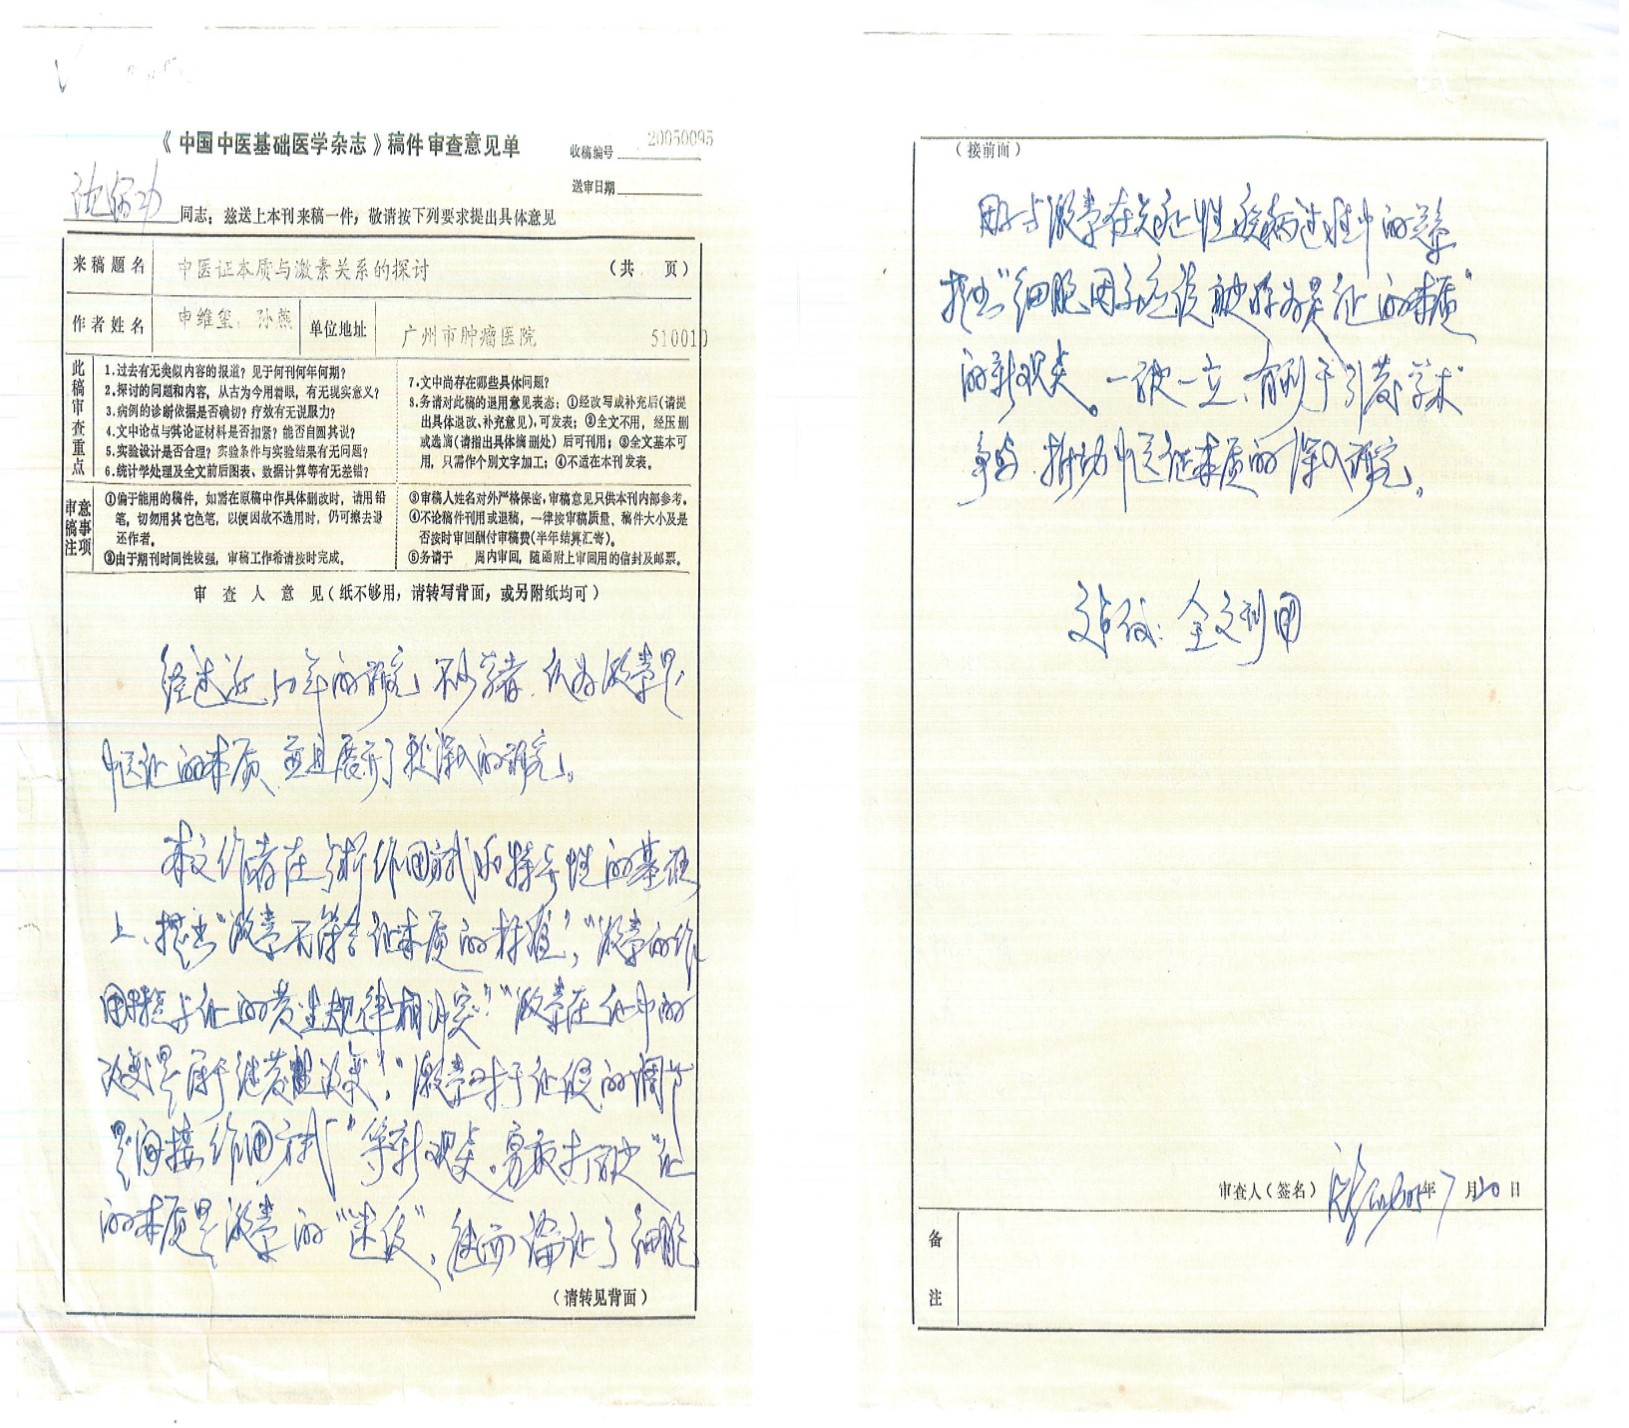 《中国中医基础医学杂志》稿件审查意见单
收稿编号 20050095
送审日期
同志：兹送上本刊来稿一件，敬请按下列要求提出具体意见
来稿题名 中医证本质与激素关系的探讨 （共 页）
作者姓名 申维玺、孙燕 单位地址 广州市肿瘤医院 510010
此稿审查重点
1.过去有无类似内容的报道？见于何刊何年何期？
2.探讨的问题和内容，从古为今用着眼，有无现实意义？
3.病例的诊断依据是否确切？疗效有无说服力？
4.文中论点与其论证材料是否扣紧？能否自圆其说？
5.实验设计是否合理？实验条件与实验结果有无问题？
6.统计学处理及全文前后图表、数据计算等有无差错？
7.文中尚存在哪些具体问题？
8.务请对此稿的退用意见表态：①经改写或补充后（请提
出具体退改、补充意见），可发表；②全文不用，经压删
或选摘（请指出具体摘删处）后可刊用；③全文基本可
用，只需作个别文字加工；④不适在本刊发表。
审稿注意事项
①偏于能用的稿件，如需在原稿中作具体删改时，请用铅
笔，切勿用其它色笔，以便因故不选用时，仍可擦去退
还作者。
②由于期刊时间性较强，审稿工作希请按时完成。
③审稿人姓名对外严格保密，审稿意见只供本刊内部参考。
④不论稿件刊用或退稿，一律按审稿质量、稿件大小及是
否按时审回酬付审稿费（半年结算汇寄）。
⑤务请于 周内审回，随函附上审回用的信封及邮票。
审查人意见（纸不够用，请转写背面，或另附纸均可）
经过近50年的研究，不少学者认为激素是
中医证的本质，并且展开了较深入的研究。
本文作者在分析作用方式和特异性的基础
上，提出“激素不符合证本质的标准”，“激素的作
用特点与证的发生规律相冲突”“激素在证中的
改变是属于继发性改变”，“激素对于证候的调节
是间接作用方式”等新观点。勇敢打破“证
的本质是激素的“迷信”，继而论证了细胞
（请转见背面）
（接前面）
因子与激素在炎症性疾病过程中的关系
提出“细胞因子应该被称为是证的本质”
的新观点。一破一立，有利于引发学术
争鸣，推动中医证本质的深入研究。
建议：全文刊用
审查人（签名） 2005年7月20日
备注